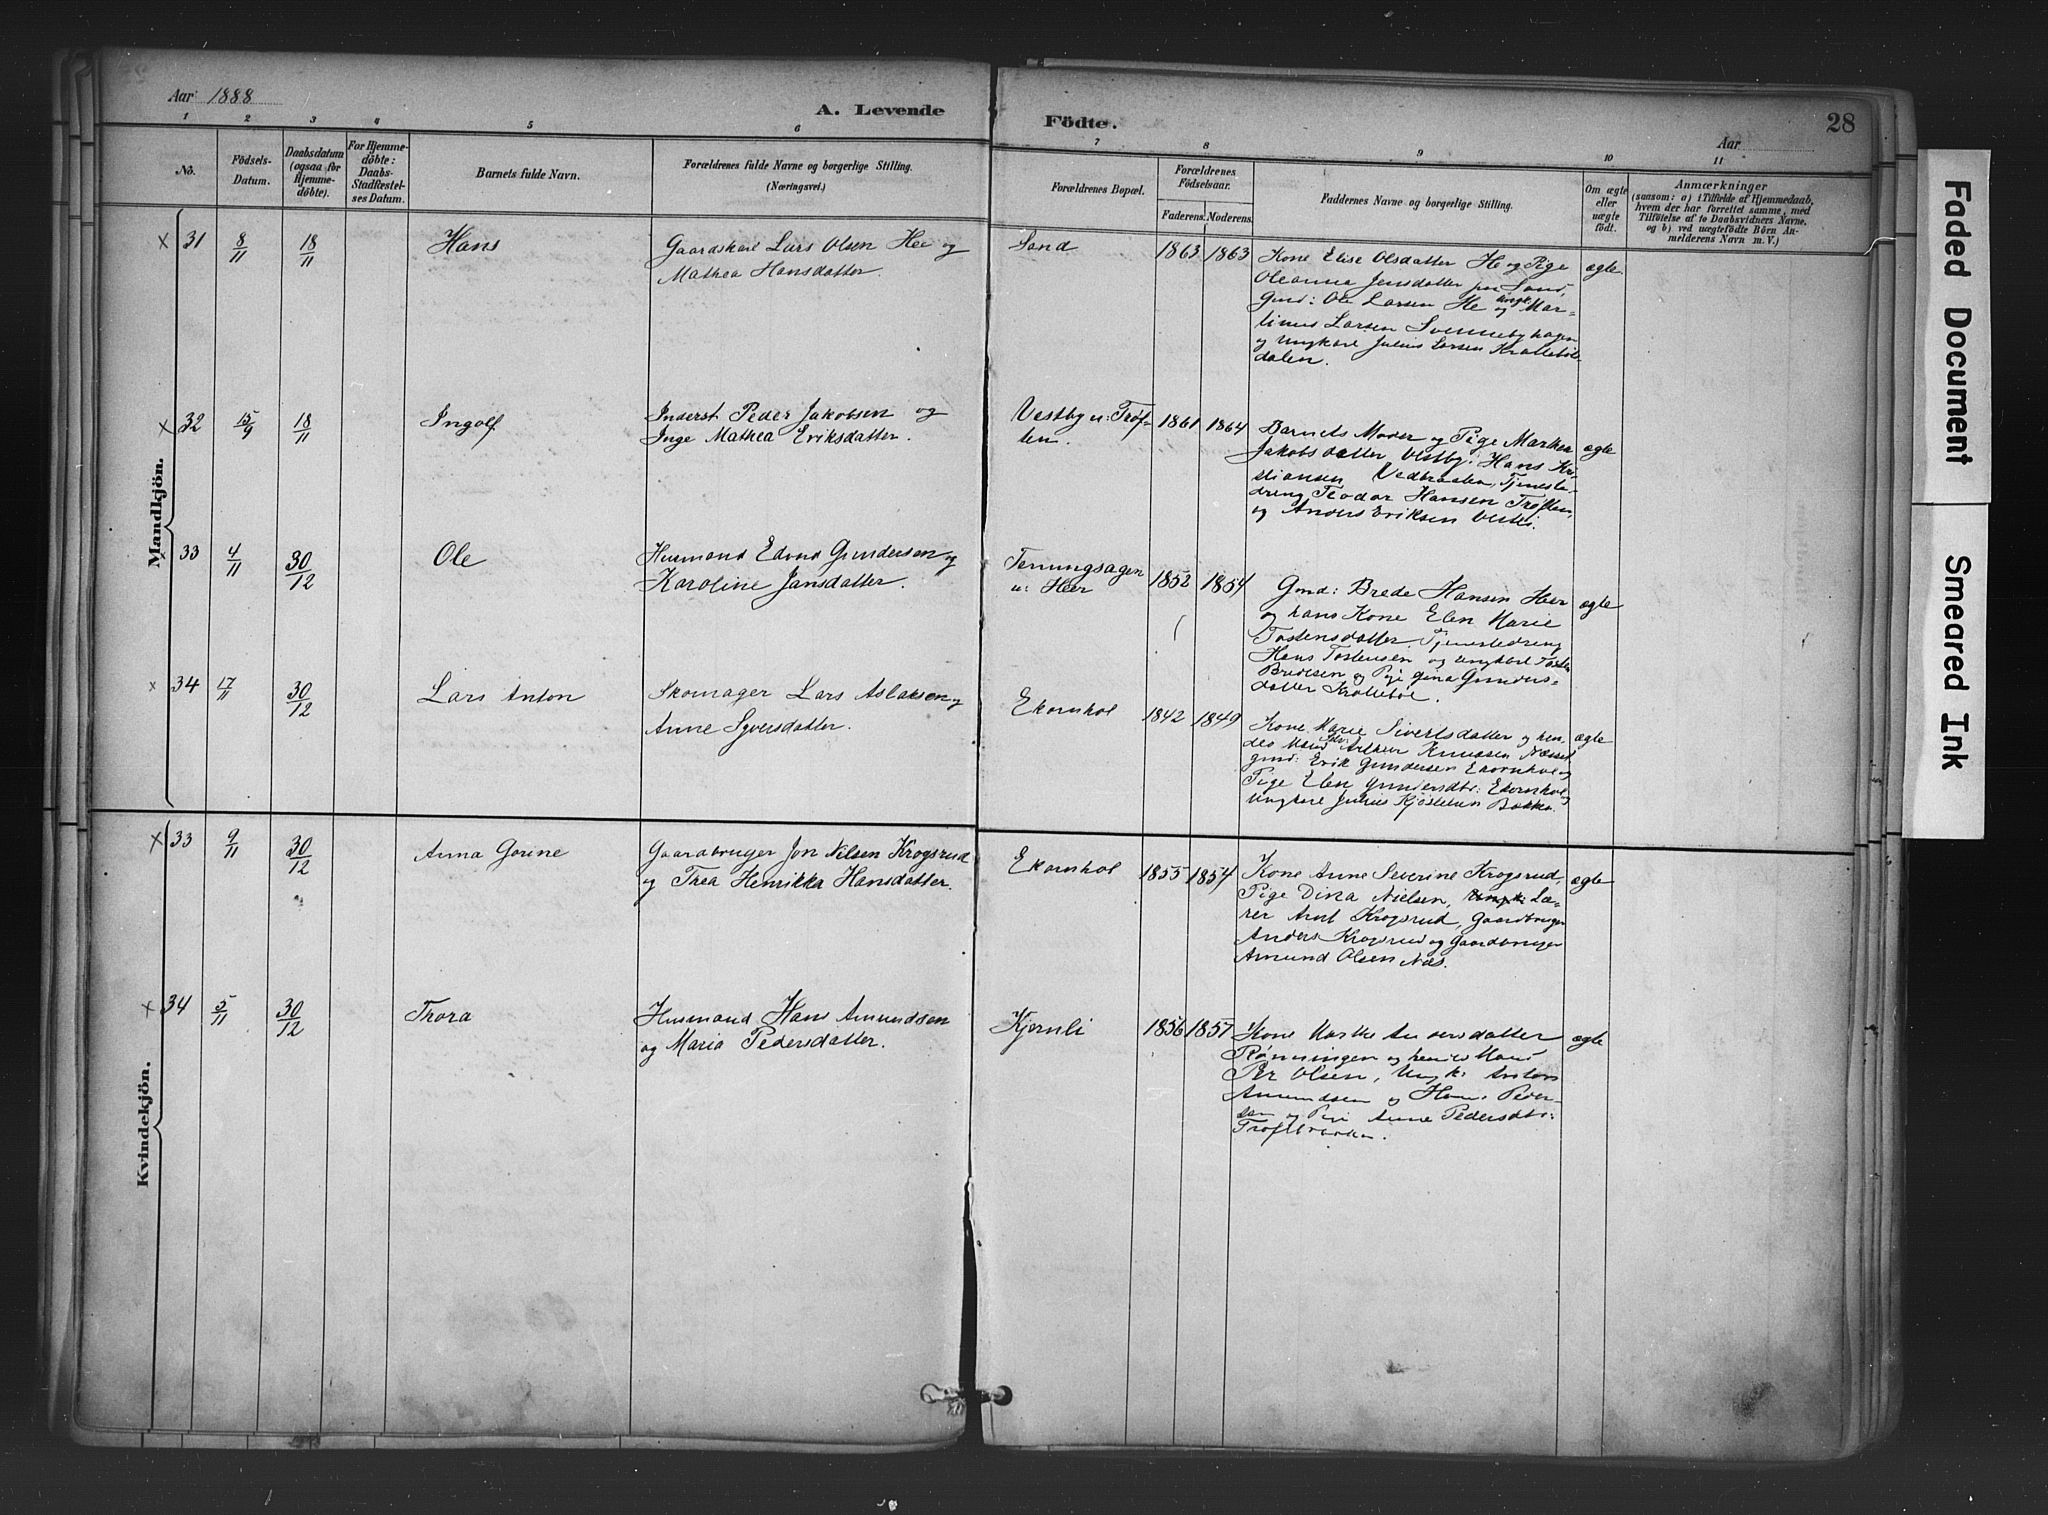 Aar 1888
A. Levende
Födte.
28
Aar
1 2 3 4 5 6 7 8 9 10 11
No.
Födsels-
Datum.
Daabsdatum
(ogsaa for
Hjemme-
döbte).
For Hjemme-
döbte:
Daabs-
Stadfæstel-
ses Datum.
Barnets fulde Navn.
Forældrenes fulde Navne og borgerlige Stilling.
(Næringsvei.)
Forældrenes Bopæl.
Forældrenes
Födselsaar.
Faderens. Moderens.
Faddernes Navne og borgerlige Stilling.
Om ægte
eller
uægte
født.
Anmærkninger
(saasom: a) i Tilfælde af Hjemmedaab,
hvem der har forrettet samme, med
Tilføielse af to Daabsvidners Navne.
og b) ved uægtefödte Börn An-
melderens Navn m. V.)
Mandkjön.
× 31 8/11 18/11 Hans
Gaardskarl Lars Olsen Hee og
Mathea Hansdatter.
Sand 1863 1863
Kone Elise Olsdatter He og Pige
Oleanna Jensdatter paa Sand,
Gmd: Ole Larsen He og Mar-
tinus Larsen Svennebyhagen
og Ungkarl Julius Larsen Krollebøl
dalen.
ægte
× 32 15/9 18/11 Ingolf
Inderst Peder Jakobsen og
Inge Mathea Eriksdatter.
Vestby u: Trøf-
ten.
1861 1864
Barnets Moder og Pige Marthea
Jakobsdatter Vestby, Hans Kri-
stiansen Vedbraaten, Tjeneste-
dreng Teodor Hansen Trøften,
og Anders Eriksen Vestby.
ægte
× 33 4/11 30/12 Ole
Husmand Edvard Gundersen og
Karoline Jansdatter.
u: Heer
1852 1854
Gmd: Brede Hansen Heer
og hans Kone Elen Marie
Tostensdatter, Tjenestedreng
Hans Tostensen og Ungkarl Tosten
Bredesen og Pige Gina Gunders-
datter Krollebøl.
ægte
× 34 17/11 30/12 Lars Anton
Skomager Lars Aslaksen og
Anne Syversdatter.
Ekornhol 1842 1849
Kone Marie Sivertsdatter og hen-
des Mand Arthur Knudsen Næsset
gmd: Erik Gundersen Ekornhol og
Pige Elen Gundersdtr: Ekornhol og
Ungkarl Julius Kjøstelsen Bakke.
ægte
Kvindekjön.
× 33 9/11 30/12 Anna Gorine
Gaardbruger Jon Nilsen Krogsrud
og Thea Henrikka Hansdatter.
Ekornhol 1855 1854
Kone Anne Severine Krogsrud,
Pige Dina Nielsen, Læ-
rer Arnt Krogsrud, Gaardbruger
Anders Krogsrud og Gaardbruger
Amund Olsen Næs.
ægte
× 34 5/11 30/12 Thora
Husmand Hans Amundsen
og Maria Pedersdatter.
Kjernli 1856 1857
Kone Marthe Andersdatter
Rønningen og hendes Mand
Per Olsen, Ungk: Anton
Amundsen og Hans Peder-
sen og Pige Anne Pedersdtr:
Trøftbraaten.
ægte
Faded Document
Smeared Ink